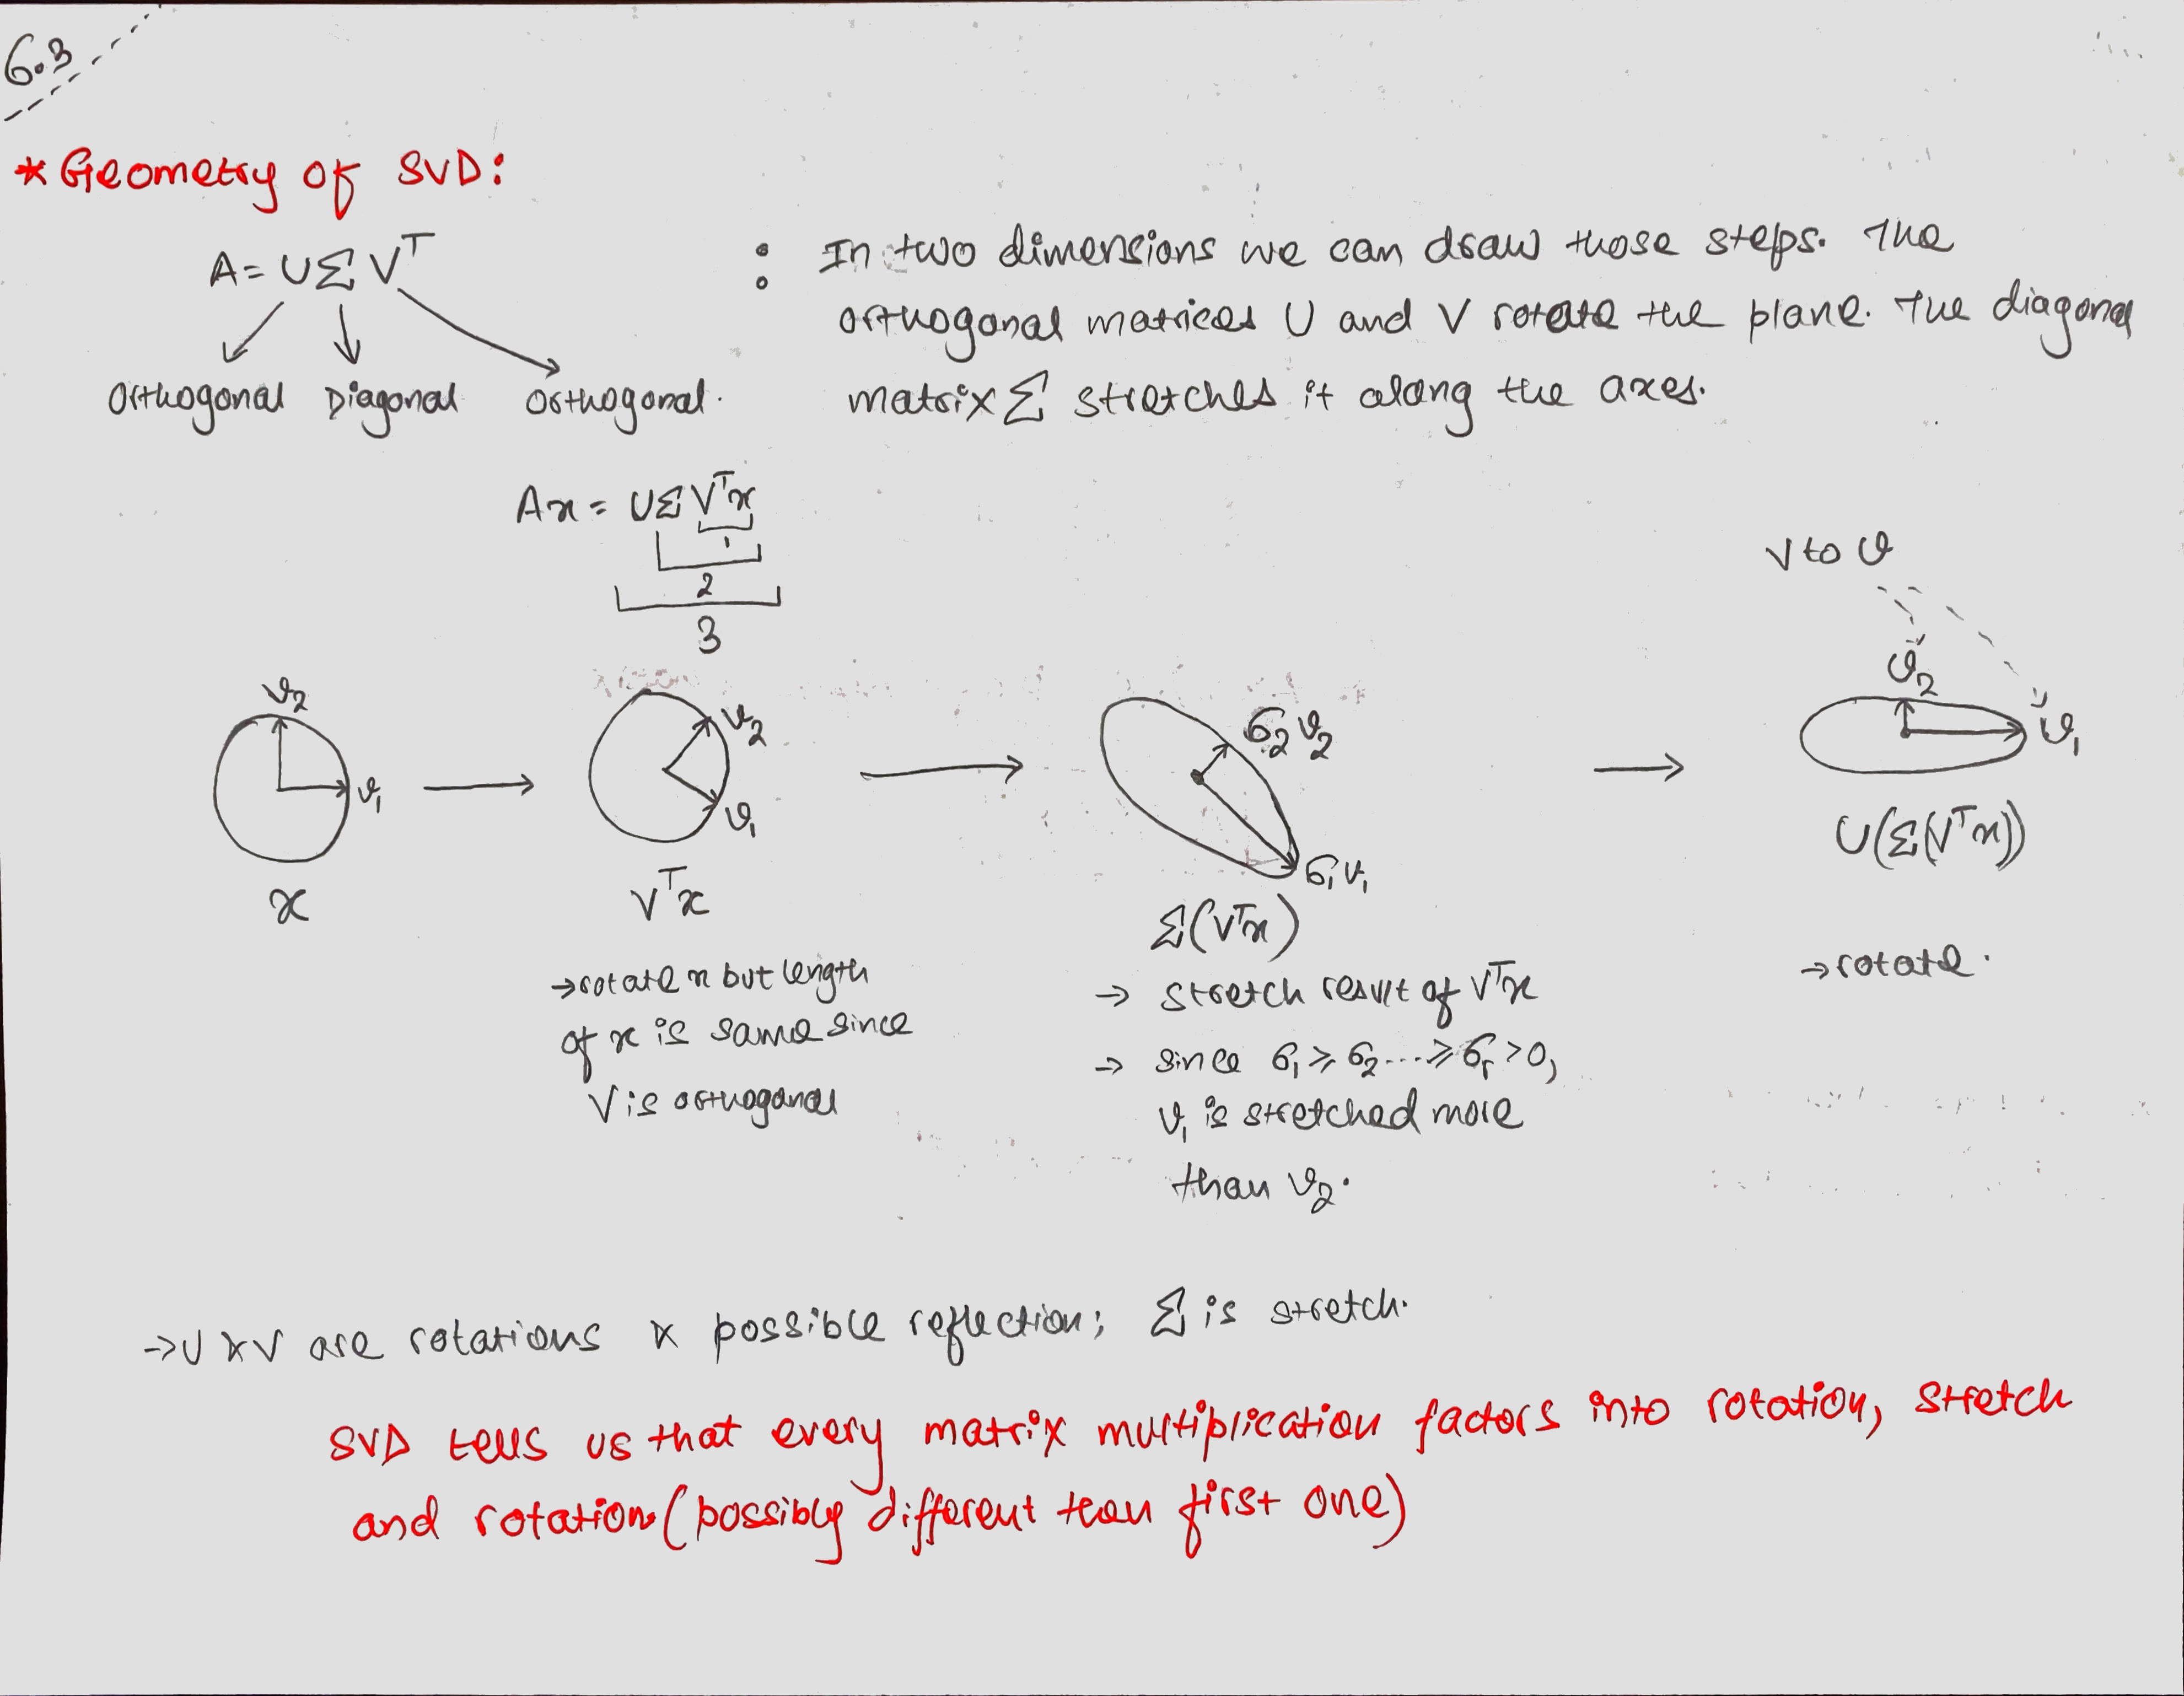 6.3
* Geometry of SVD:
A = UΣV^T
Orthogonal Diagonal Orthogonal.
: In two dimensions we can draw those steps. The
orthogonal matrices U and V rotate the plane. The diagonal
matrix Σ stretches it along the axes.
Ax = UΣV^Tx
1
2
3
V to U
v2
v1
x
v2
v1
V^Tx
σ2v2
σ1v1
Σ(V^Tx)
U2
U1
U(Σ(V^Tx))
→ rotate x but length
of x is same since
V is orthogonal
→ stretch result of V^Tx
→ since σ1 ≥ σ2 ... ≥ σr > 0,
v1 is stretched more
than v2.
→ rotate.
→ U & V are rotations & possible reflection; Σ is stretch.
SVD tells us that every matrix multiplication factors into rotation, stretch
and rotation (possibly different than first one)